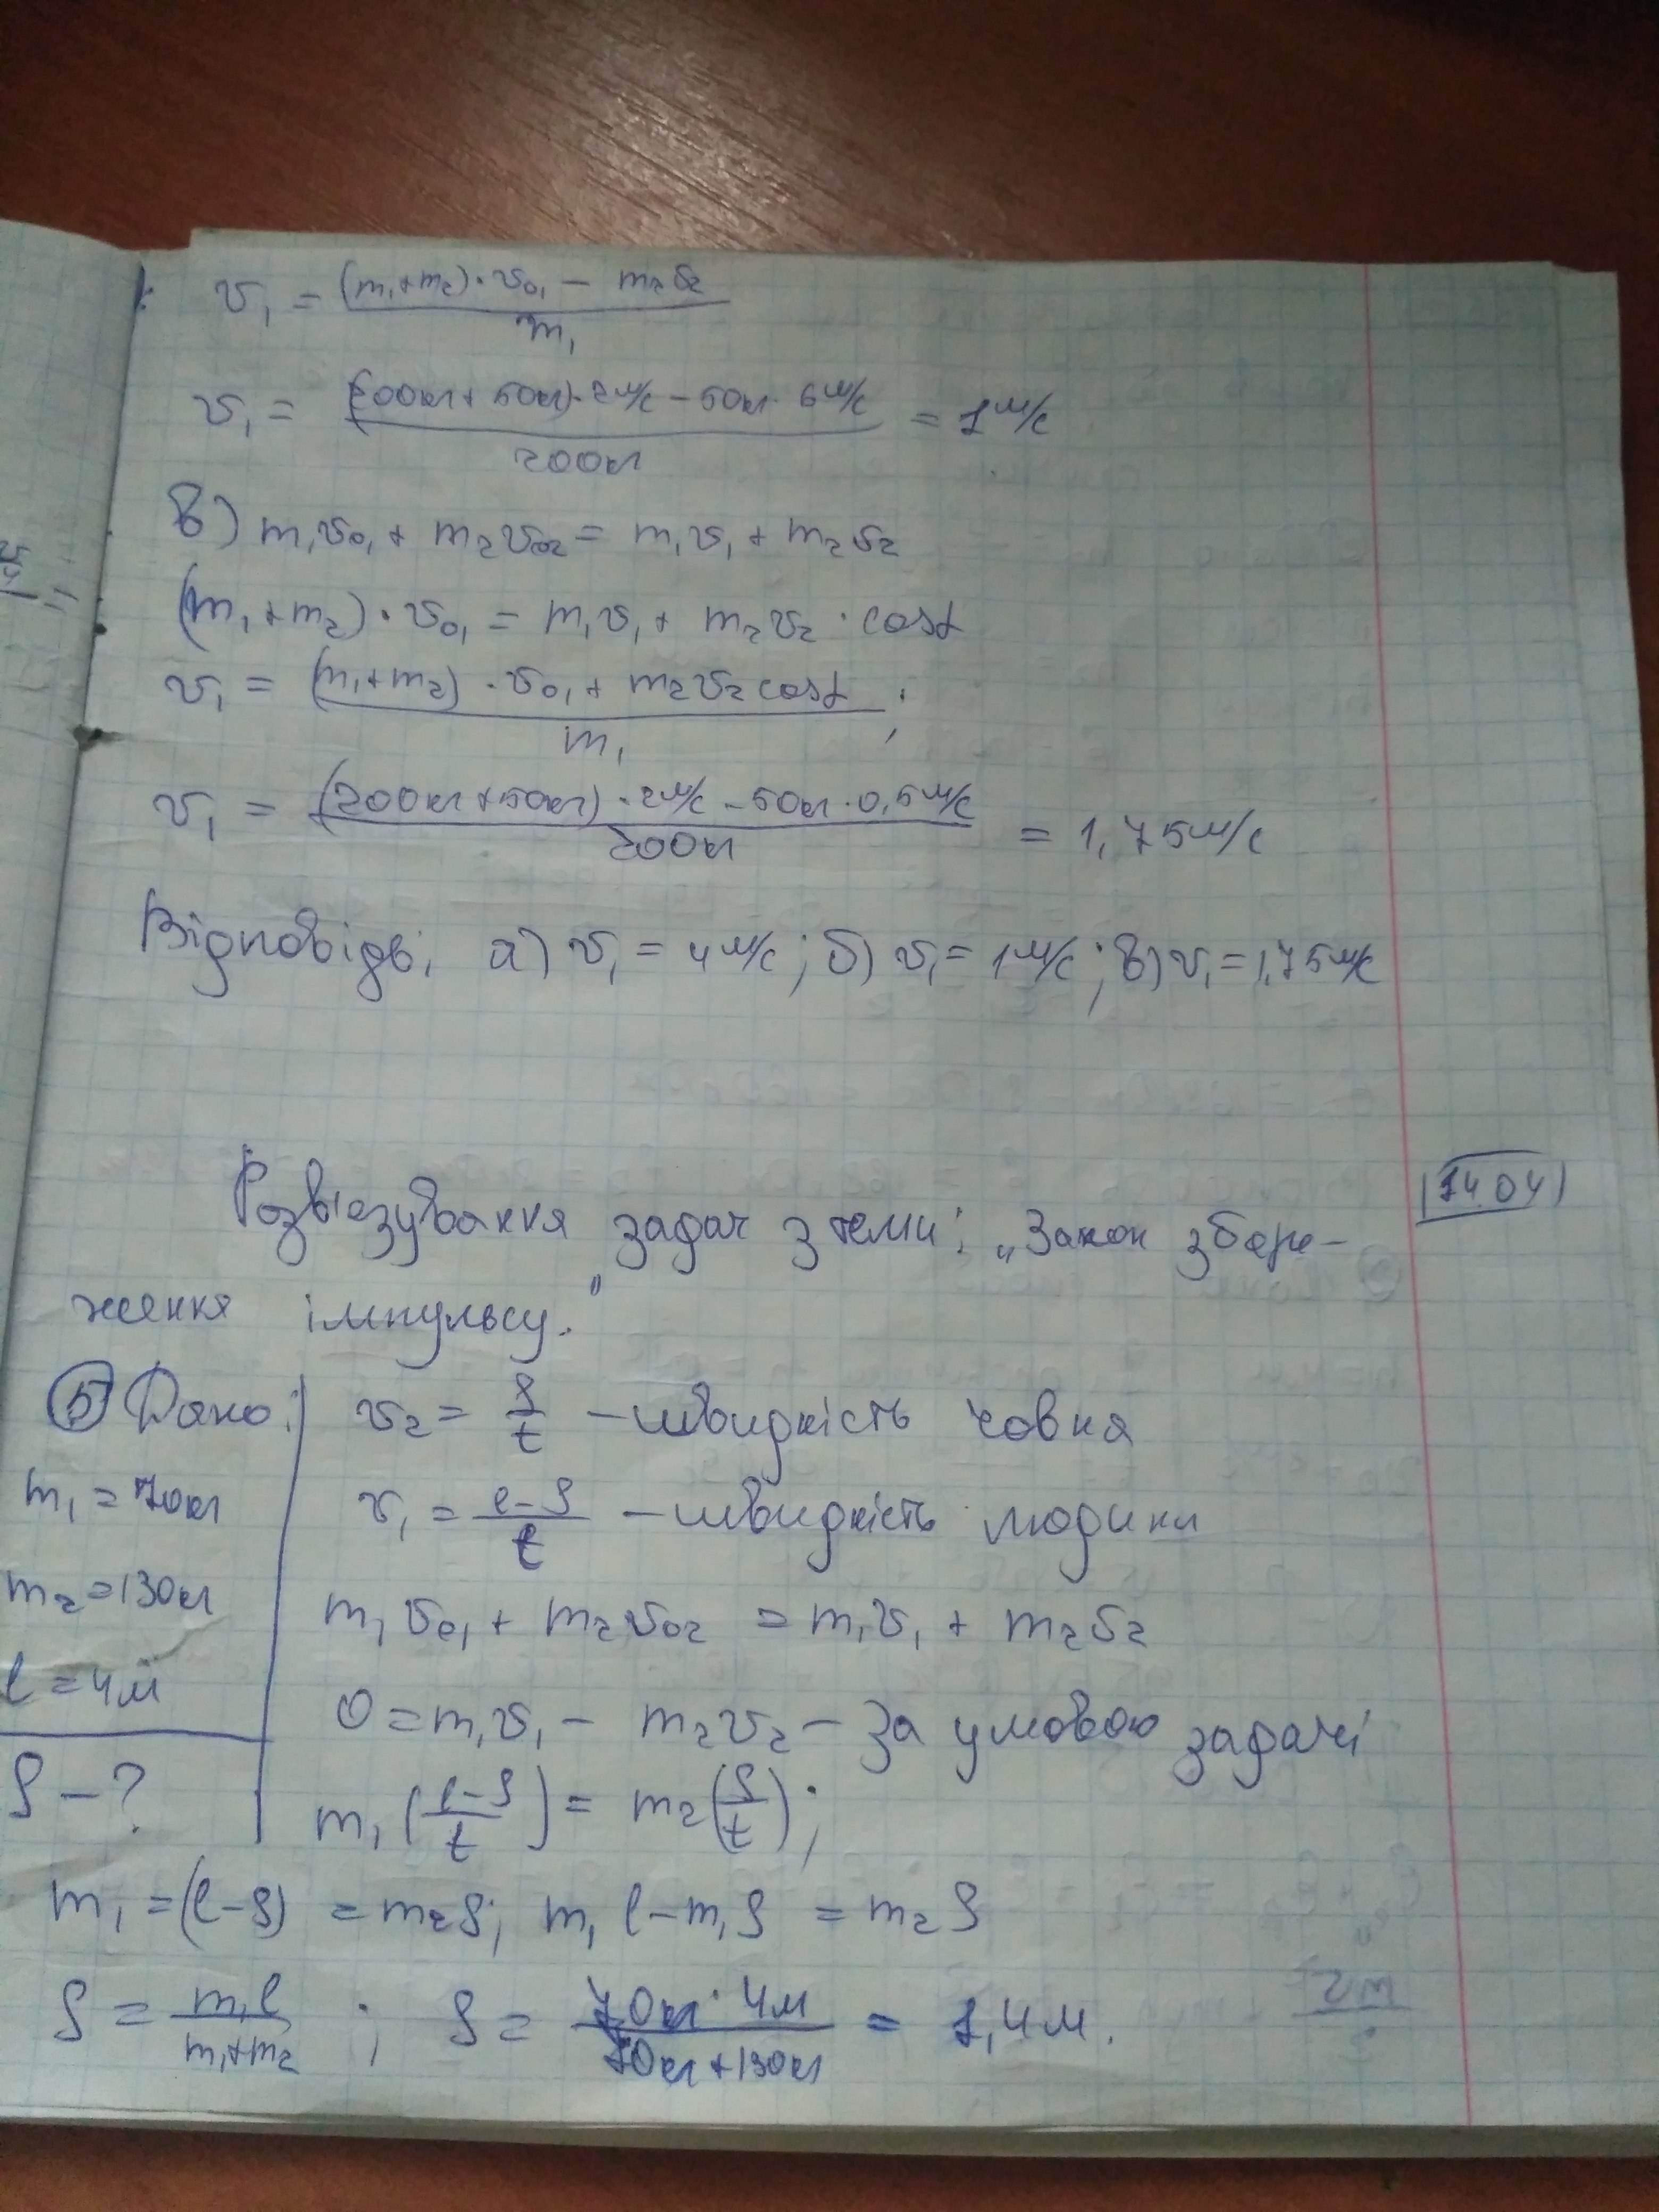 v₁ = ((m₁+m₂)·v₀₁ − m₂v₂)/m₁
v₁ = ((200кг+50кг)·2м/с − 50кг·6м/с)/200кг = 1м/с
в) m₁v₀₁ + m₂v₀₂ = m₁v₁ + m₂v₂
(m₁+m₂)·v₀₁ = m₁v₁ + m₂v₂·cosα
v₁ = ((m₁+m₂)·v₀₁ + m₂v₂cosα)/m₁ ;
v₁ = ((200кг+50кг)·2м/с − 50кг·0,5м/с)/200кг = 1,75м/с
Відповідь: а) v₁ = 4м/с; б) v₁ = 1м/с; в) v₁ = 1,75м/с
14.04
Розв'язування задач з теми: „Закон збере-
ження імпульсу."
5 Дано:
m₁ = 70кг
m₂ = 130кг
l = 4м
S − ?
v₂ = S/t − швидкість човна
v₁ = (l−S)/t − швидкість людини
m₁v₀₁ + m₂v₀₂ = m₁v₁ + m₂v₂
0 = m₁v₁ − m₂v₂ − за умовою задачі
m₁((l−S)/t) = m₂(S/t);
m₁ = (l−S) = m₂S; m₁l − m₁S = m₂S
S = m₁l/(m₁+m₂) ; S = (70кг·4м)/(70кг+130кг) = 1,4м.